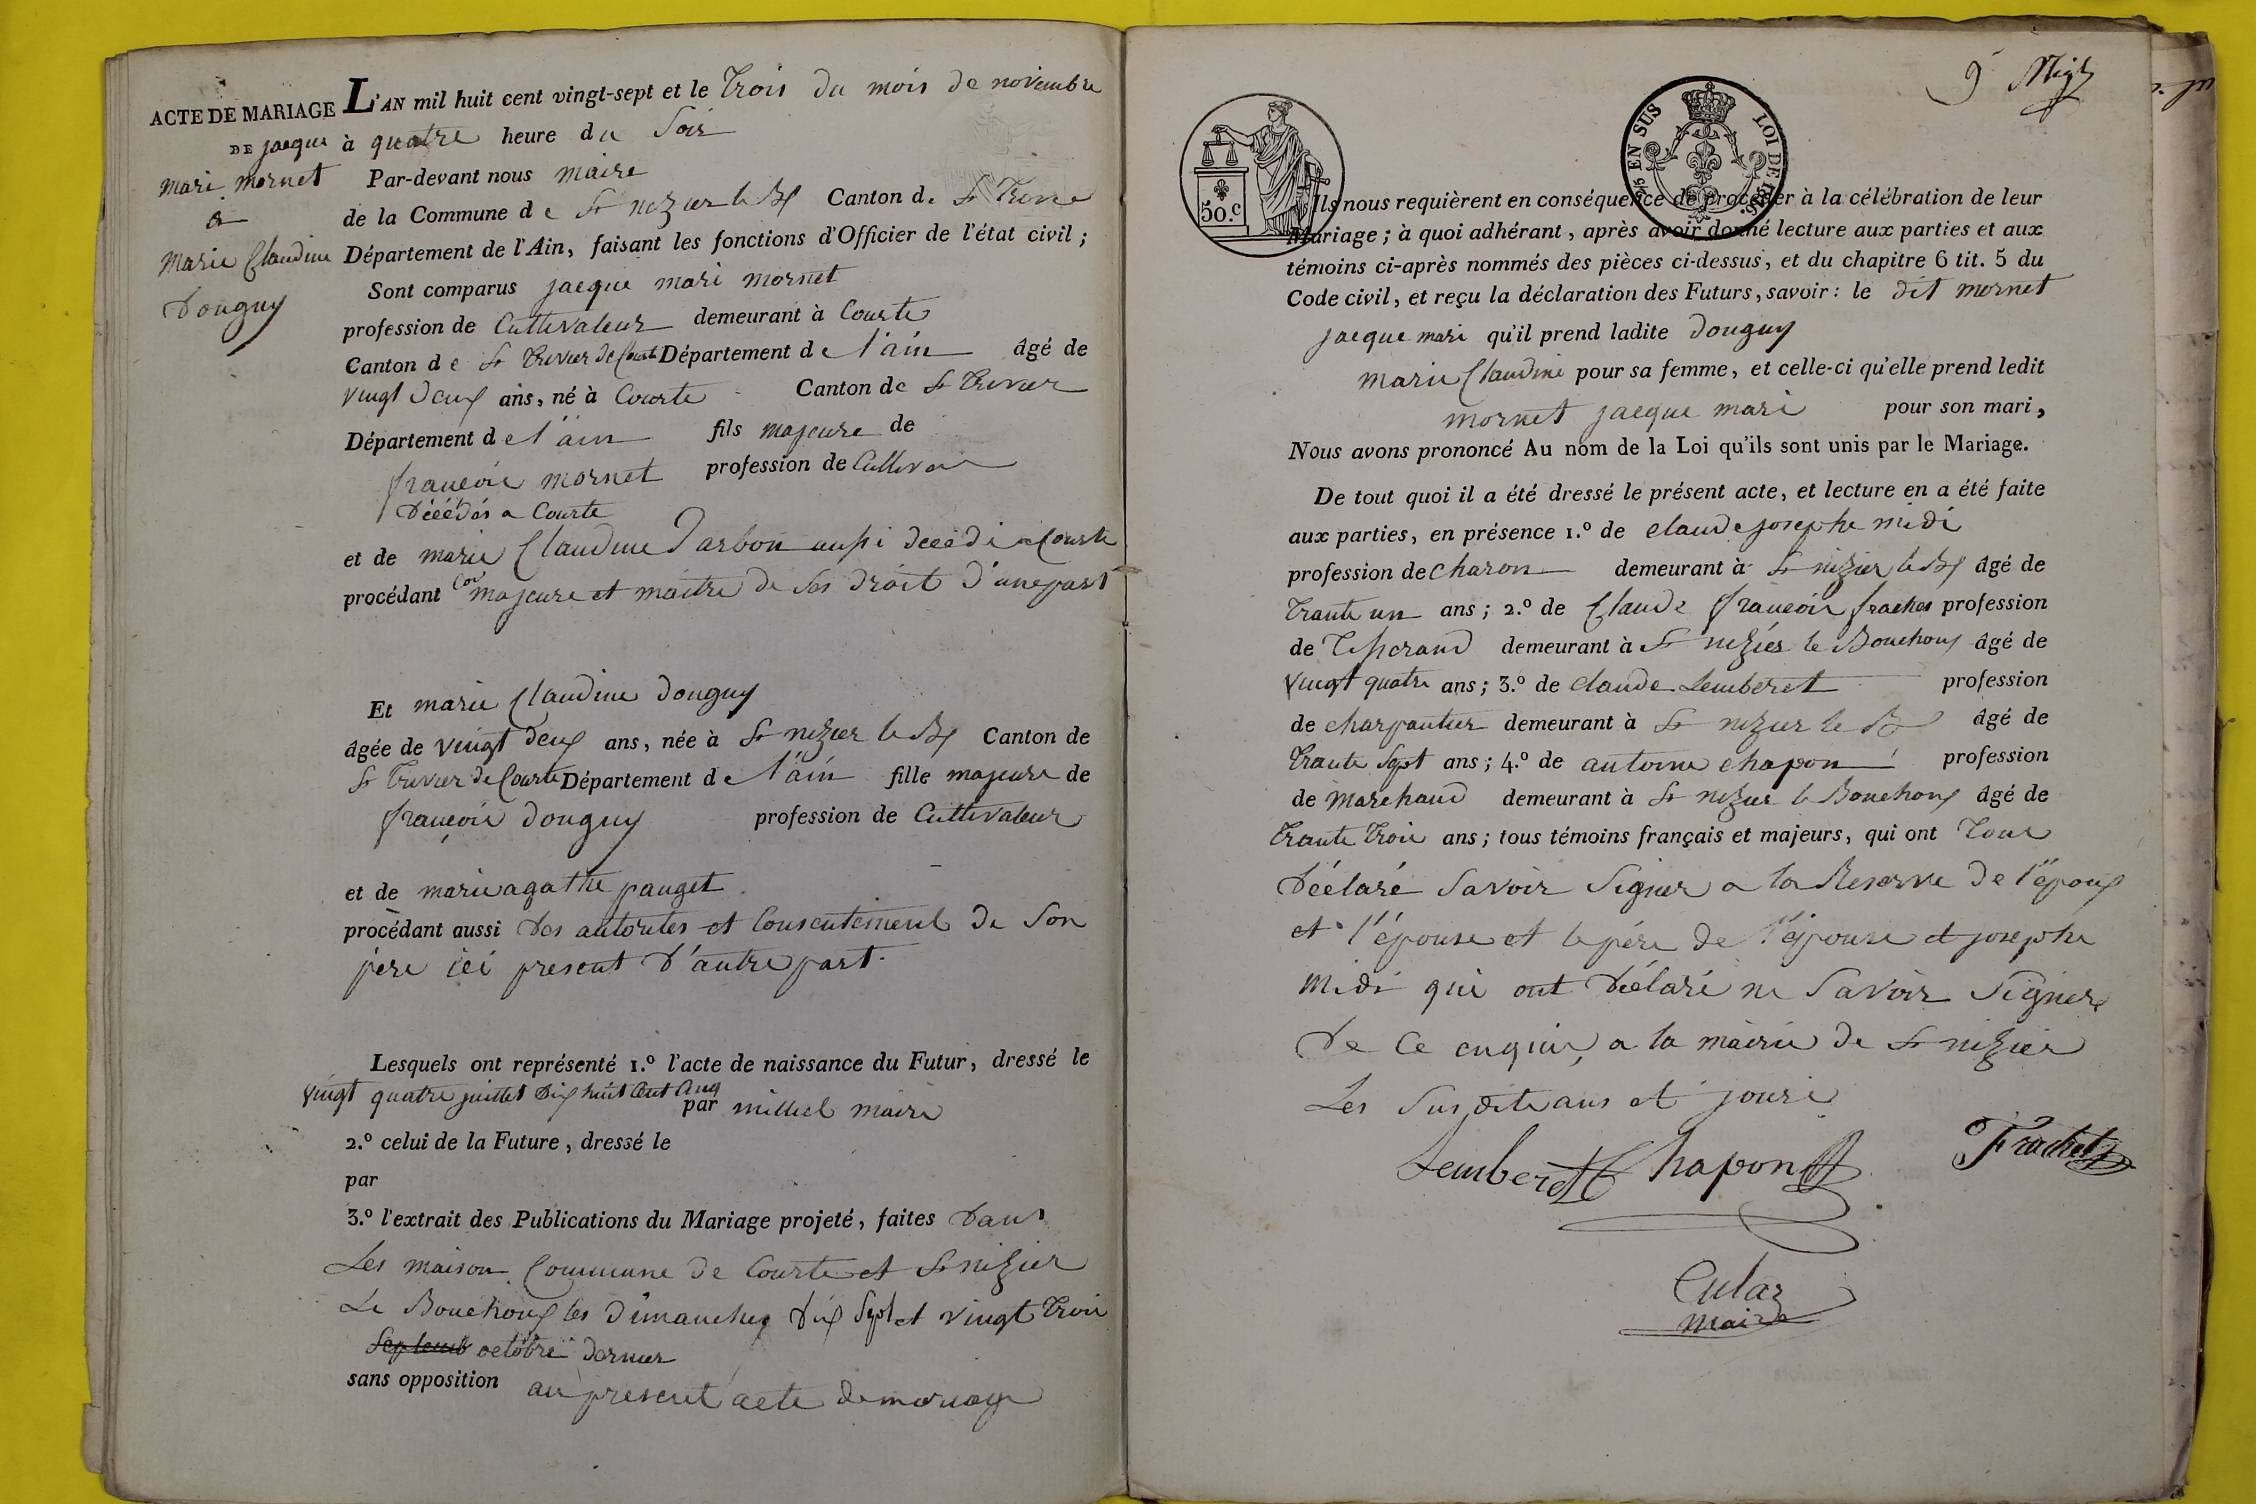 ACTE DE MARIAGE
DE jacque
mari mornet
&
Marie Claudine
Douguy
L'AN mil huit cent vingt-sept et le trois du mois de novembre
à quatre heure du Soir
Par-devant nous maire
de la Commune de St nizier le Bx Canton de St Trivier
Département de l'Ain, faisant les fonctions d'Officier de l'état civil ;
Sont comparus jacque mari mornet
profession de Cultivateur demeurant à Courte
Canton de St Trivier de Courte Département de l'ain âgé de
vingt deux ans, né à Courte Canton de St Trivier
Département de l'ain fils majeure de
françois mornet profession de Cultiva
Décédés a Courte
et de marie Claudine Darbon aussi décédé a Courte
procédant Co majeure et maitre de Ses droit d'une part
Et marie Claudine douguy
âgée de vingt deux ans, née à St nizier le Bx Canton de
St Trivier de Courte Département de l'ain fille majeure de
françois douguy profession de Cultivateur
et de marie agathe pauget
procèdant aussi Des autorités et Consentement de Son
père ici present D'autre part.
Lesquels ont représenté 1.º l'acte de naissance du Futur, dressé le
vingt quatre juillet Dix huit Cent Cinq
par milliel maire
2.º celui de la Future, dressé le
par
3.º l'extrait des Publications du Mariage projeté, faites Dans
Les maison Commune de Courte et St nizier
Le Bouchoux les Dimanches Dix Sept et vingt Trois
Septemb octobre dernier
sans opposition au present acte de mariage
9e
50.c
2/5 EN SUS LOI DE
Ils nous requièrent en conséquence de procéder à la célébration de leur
Mariage ; à quoi adhérant, après avoir donné lecture aux parties et aux
témoins ci-après nommés des pièces ci-dessus, et du chapitre 6 tit. 5 du
Code civil, et reçu la déclaration des Futurs, savoir : le dit mornet
jacque mari qu'il prend ladite douguy
marie Claudine pour sa femme, et celle-ci qu'elle prend ledit
mornet jacque mari pour son mari,
Nous avons prononcé Au nom de la Loi qu'ils sont unis par le Mariage.
De tout quoi il a été dressé le présent acte, et lecture en a été faite
aux parties, en présence 1.º de claude josephe midi
profession de charon demeurant à St nizier le Bx âgé de
Trante un ans ; 2.º de Claude françois frachet profession
de Tisserand demeurant à St nizier le Bouchoux âgé de
vingt quatre ans ; 3.º de claude Lemberet profession
de charpantier demeurant à St nizier le B âgé de
Trante Sept ans ; 4.º de antoine chapon profession
de Marchand demeurant à St nizier le Bouchoux âgé de
Trante Trois ans ; tous témoins français et majeurs, qui ont Tous
Déclaré Savoir Signer a la Reserve de l'époux
et l'épouse et le pére de l'épouse et josephe
midi qui ont Déclaré ne Savoir Signer
De Ce enquis, a la mairie de St nizier
Les Susdite ans et jours
Lemberet Chapon Frachet
Cular
maire